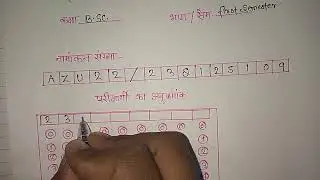 कक्षा B.SC. भाग / सेम First.Semester
नामांकन संख्या
A Z U 2 2 / 2 3 6 1 2 5 1 0 9
परीक्षार्थी का अनुक्रमांक
2 3